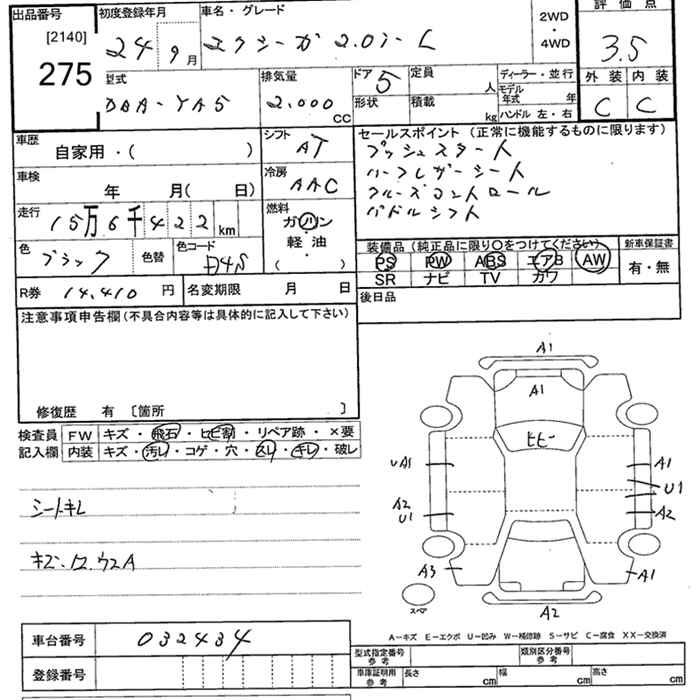 出品番号 初度登録年月 車名・グレード 2WD ・ 4WD 評価点
[2140] 275 24 9月 エクシーガ 2.0i-L 3.5
型式 排気量 ドア 定員 ディーラー・並行 外装 内装
DBA-YA5 2.000 CC 5 人 モデル年式 年 C C
形状 積載 kg ハンドル 左・右
車歴 シフト セールスポイント(正常に機能するものに限ります)
自家用・( ) AT プッシュスタート
車検 冷房 ハーフレザーシート
年 月( 日) AAC クルーズコントロール
走行 燃料 パドルシフト
15万6千422km ガソリン
色 色替 色コード 軽油 装備品(純正品に限り○をつけてください) 新車保証書
ブラック D4S ( ) PS PW ABS エアB AW 有・無
SR ナビ TV カワ
R券 14,410円 名変期限 月 日 後日品
注意事項申告欄(不具合内容等は具体的に記入して下さい)
修復歴 有 [箇所 ]
検査員 FW キズ・飛石・ヒビ割・リペア跡・×要
記入欄 内装 キズ・汚レ・コゲ・穴・スレ・キレ・破レ
シートキレ
A1
A1
ヒビー
UA1 A1
U1
A2 A2
U1
A3 A1
スペア
A2
A-キズ E-エクボ U-凹み W-補修跡 S-サビ C-腐食 XX-交換済
車台番号 032434
登録番号
型式指定番号 参考 類別区分番号 参考
車庫証明用 参考 長さ cm 幅 cm 高さ cm